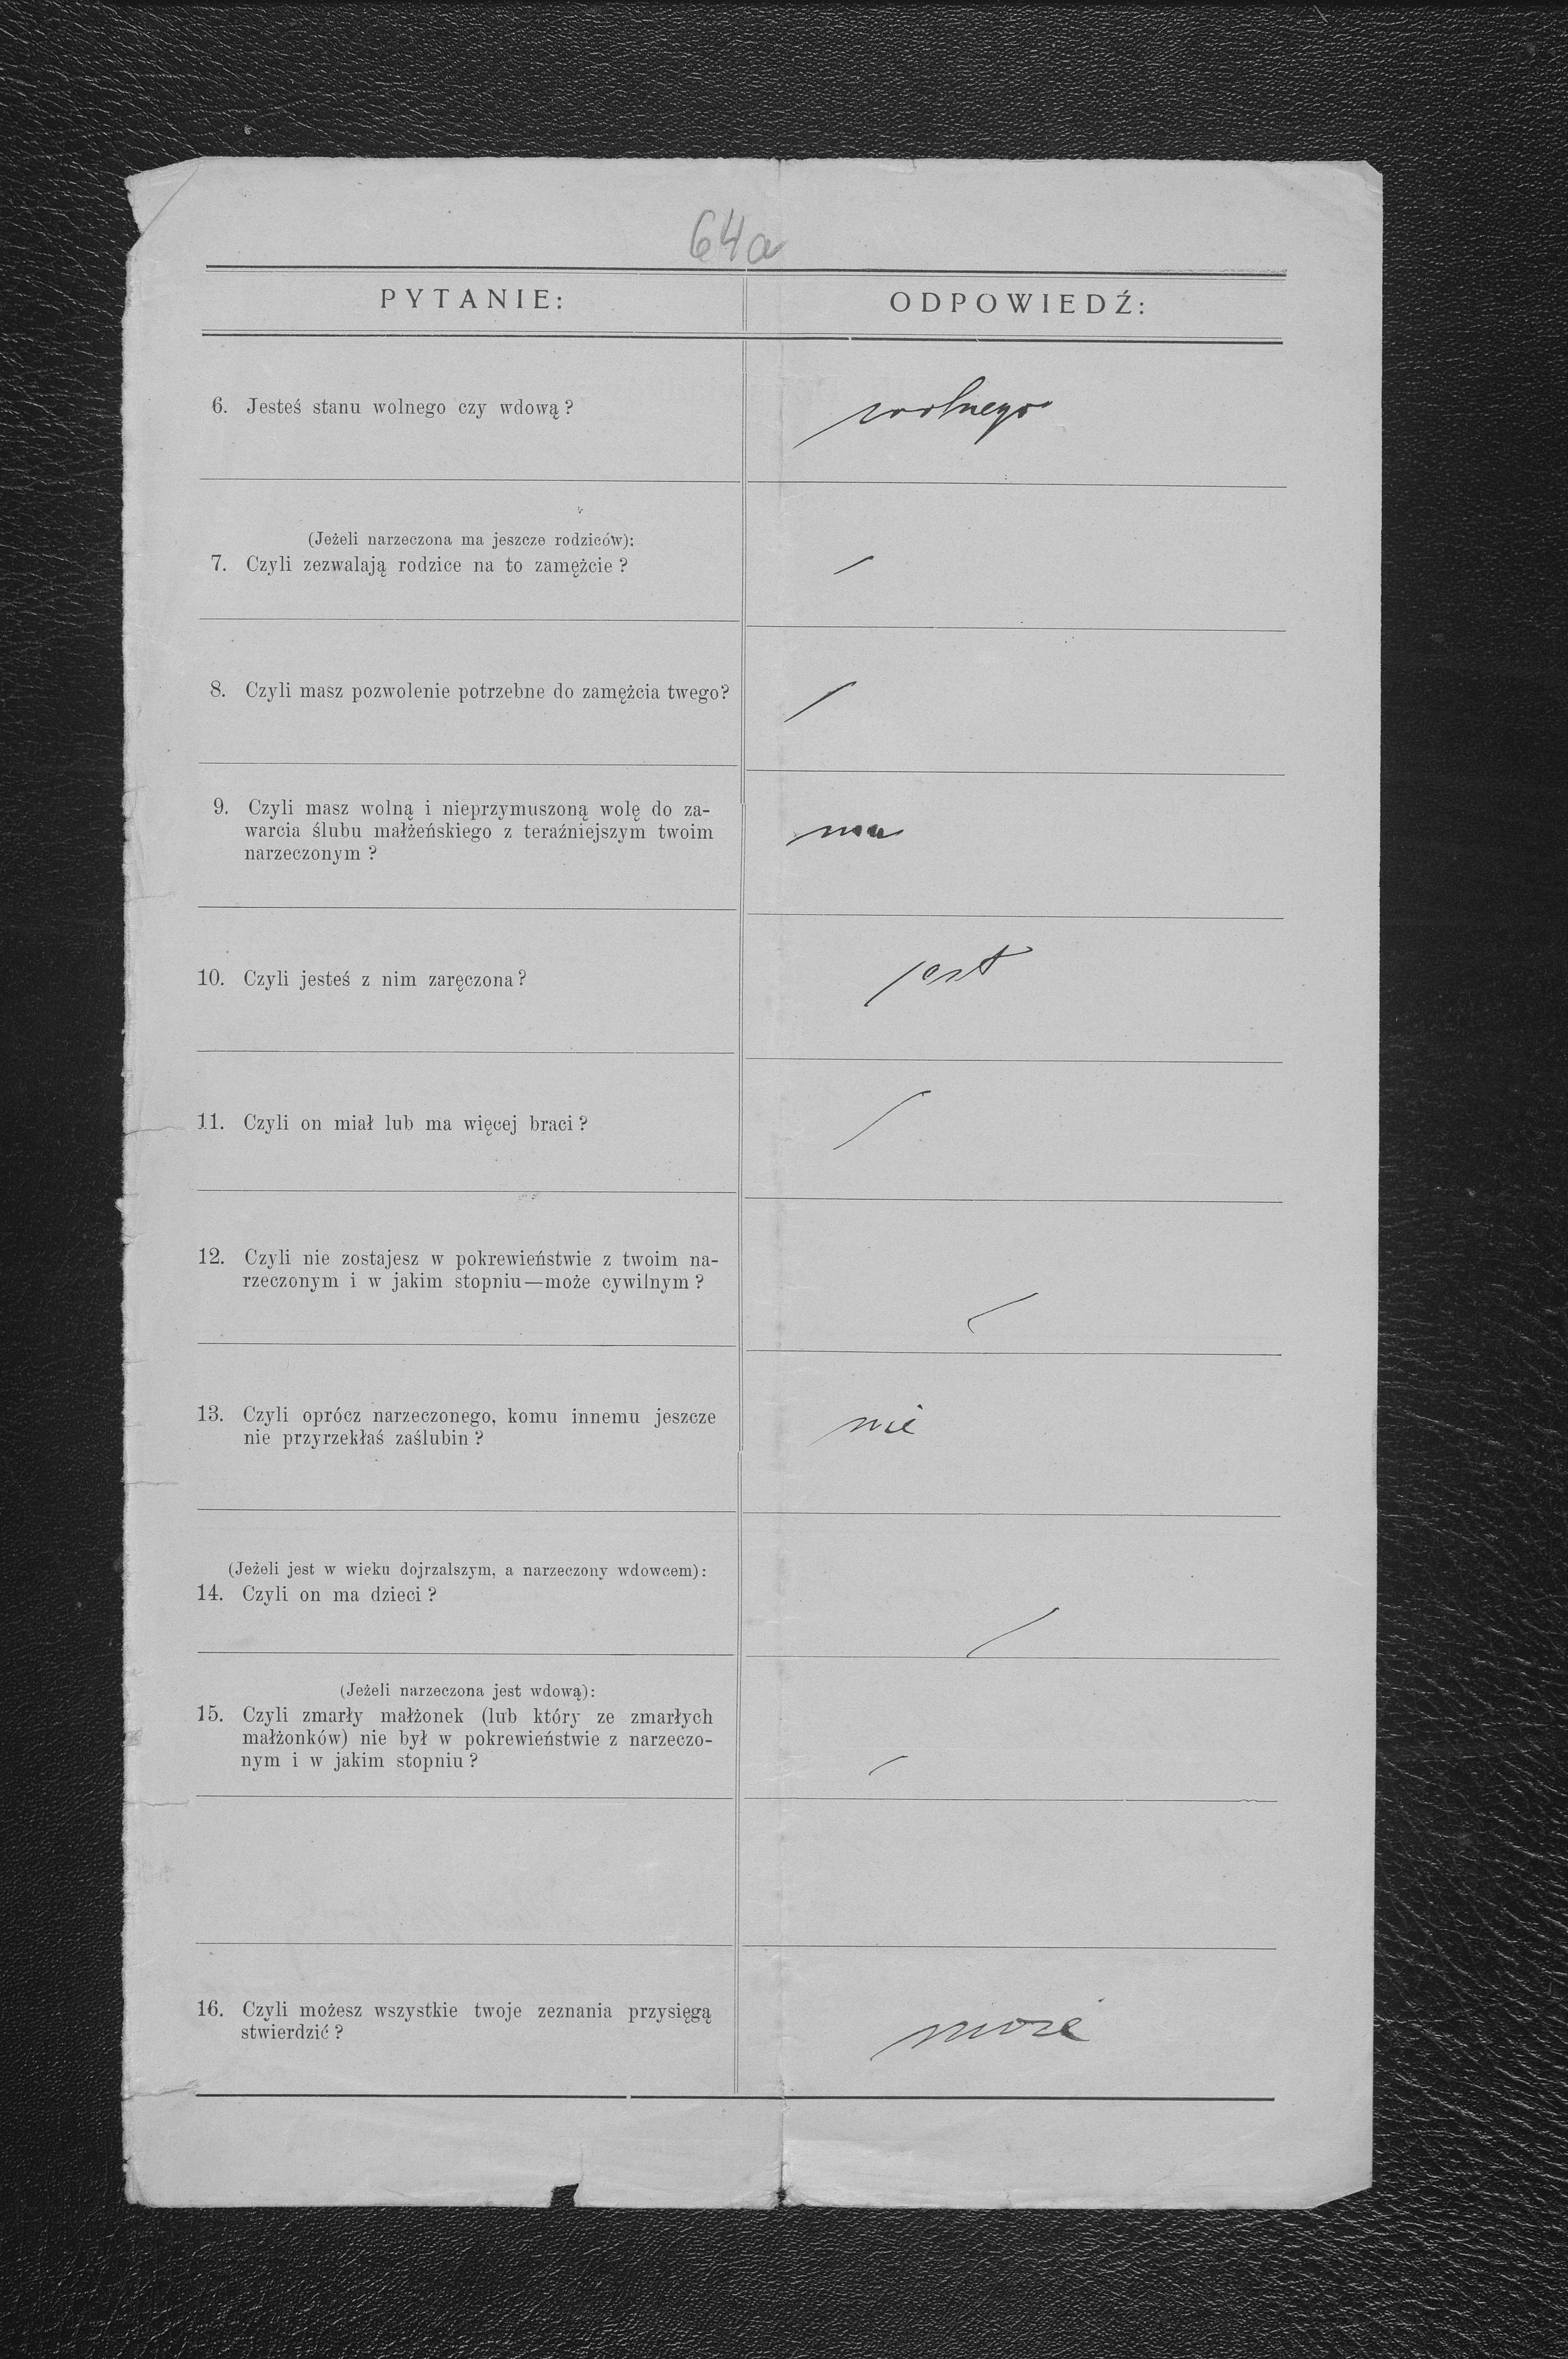 64a
PYTANIE:
ODPOWIEDŹ:
6. Jesteś stanu wolnego czy wdową?
wolnego
(Jeżeli narzeczona ma jeszcze rodziców):
7. Czyli zezwalają rodzice na to zamężcie?
8. Czyli masz pozwolenie potrzebne do zamężcia twego?
9. Czyli masz wolną i nieprzymuszoną wolę do za-
warcia ślubu małżeńskiego z teraźniejszym twoim
narzeczonym?
ma
10. Czyli jesteś z nim zaręczona?
jest
11. Czyli on miał lub ma więcej braci?
12. Czyli nie zostajesz w pokrewieństwie z twoim na-
rzeczonym i w jakim stopniu—może cywilnym?
13. Czyli oprócz narzeczonego, komu innemu jeszcze
nie przyrzekłaś zaślubin?
nie
(Jeżeli jest w wieku dojrzalszym, a narzeczony wdowcem):
14. Czyli on ma dzieci?
(Jeżeli narzeczona jest wdową):
15. Czyli zmarły małżonek (lub który ze zmarłych
małżonków) nie był w pokrewieństwie z narzeczo-
nym i w jakim stopniu?
16. Czyli możesz wszystkie twoje zeznania przysięgą
stwierdzić?
może